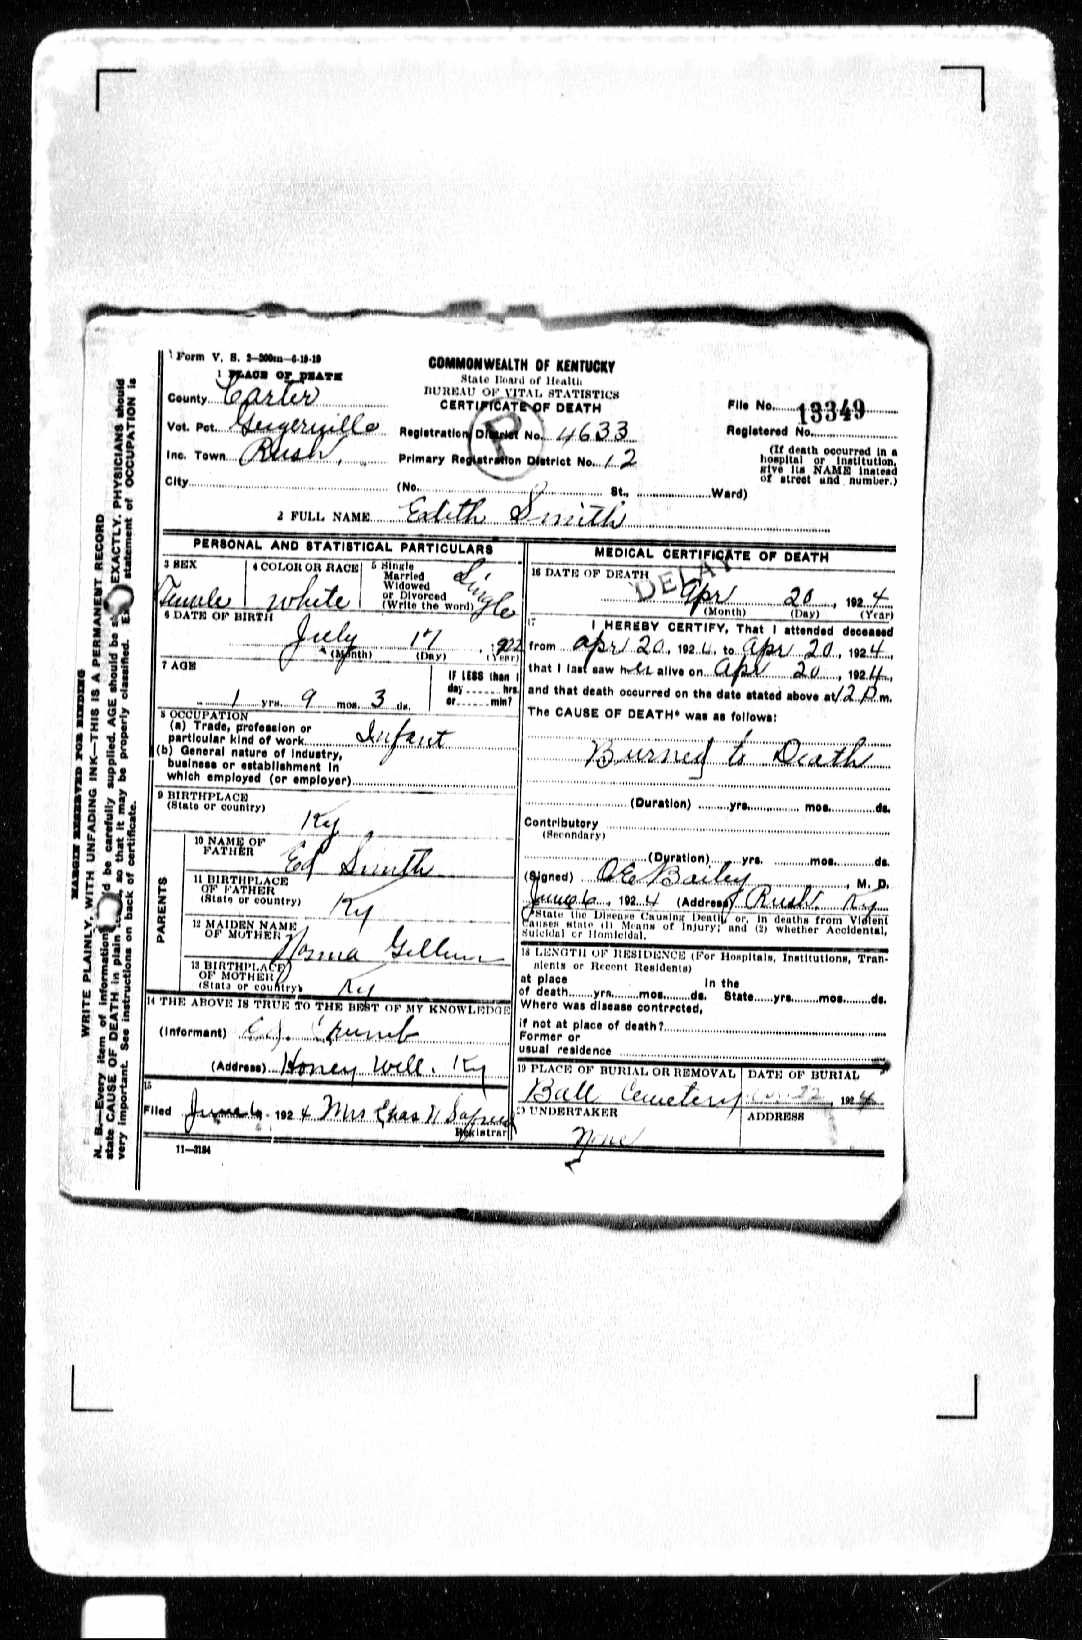 Form V. S. 2—200m—6-19-19
1 PLACE OF DEATH
County Carter
Vot. Pct. Geigerville
Inc. Town Rush,
City
COMMONWEALTH OF KENTUCKY
State Board of Health
BUREAU OF VITAL STATISTICS
CERTIFICATE OF DEATH
P
Registration District No. 4633
Primary Registration District No. 12
(No. St., Ward)
File No. 13349
Registered No.
(If death occurred in a
hospital or institution,
give its NAME instead
of street and number.)
2 FULL NAME Edith Smith
PERSONAL AND STATISTICAL PARTICULARS
3 SEX
Female
4 COLOR OR RACE
White
5 Single
Married
Widowed
or Divorced
(Write the word)
Single
6 DATE OF BIRTH
July 17, 1922
(Month) (Day) (Year)
7 AGE
1 yrs. 9 mos. 3 ds.
IF LESS than 1
day hrs.
or min?
8 OCCUPATION
(a) Trade, profession or
particular kind of work Infant
(b) General nature of industry,
business or establishment in
which employed (or employer)
9 BIRTHPLACE
(State or country)
Ky
PARENTS
10 NAME OF
FATHER Ed Smith
11 BIRTHPLACE
OF FATHER
(State or country) Ky
12 MAIDEN NAME
OF MOTHER Norma
13 BIRTHPLACE
OF MOTHER
(State or country) Ky
14 THE ABOVE IS TRUE TO THE BEST OF MY KNOWLEDGE
(Informant) Ed. Crumb
(Address) Honey Well. Ky
15
Filed June 6, 1924 Mrs Chas N
Registrar
11—3184
MEDICAL CERTIFICATE OF DEATH
DELAY
16 DATE OF DEATH
Apr 20, 1924
(Month) (Day) (Year)
17 I HEREBY CERTIFY, That I attended deceased
from Apr 20, 1924, to Apr 20, 1924,
that I last saw her alive on Apr 20, 1924,
and that death occurred on the date stated above at 12 P m.
The CAUSE OF DEATH* was as follows:
Burned to Death
(Duration) yrs. mos. ds.
Contributory
(Secondary)
(Duration) yrs. mos. ds.
(Signed) OE Bailey, M. D.
June 6, 1924 (Address) Rush Ky
*State the Disease Causing Death, or, in deaths from Violent
Causes state (1) Means of Injury; and (2) whether Accidental,
Suicidal or Homicidal.
18 LENGTH OF RESIDENCE (For Hospitals, Institutions, Tran-
sients or Recent Residents)
at place In the
of death yrs. mos. ds. State yrs. mos. ds.
Where was disease contracted,
if not at place of death?
Former or
usual residence
19 PLACE OF BURIAL OR REMOVAL
Ball Cemetery
DATE OF BURIAL
22, 1924
20 UNDERTAKER
None
ADDRESS
MARGIN RESERVED FOR BINDING
WRITE PLAINLY, WITH UNFADING INK—THIS IS A PERMANENT RECORD
N. B.—Every item of information should be carefully supplied. AGE should be stated EXACTLY. PHYSICIANS should
state CAUSE OF DEATH in plain terms, so that it may be properly classified. Exact statement of OCCUPATION is
very important. See instructions on back of certificate.